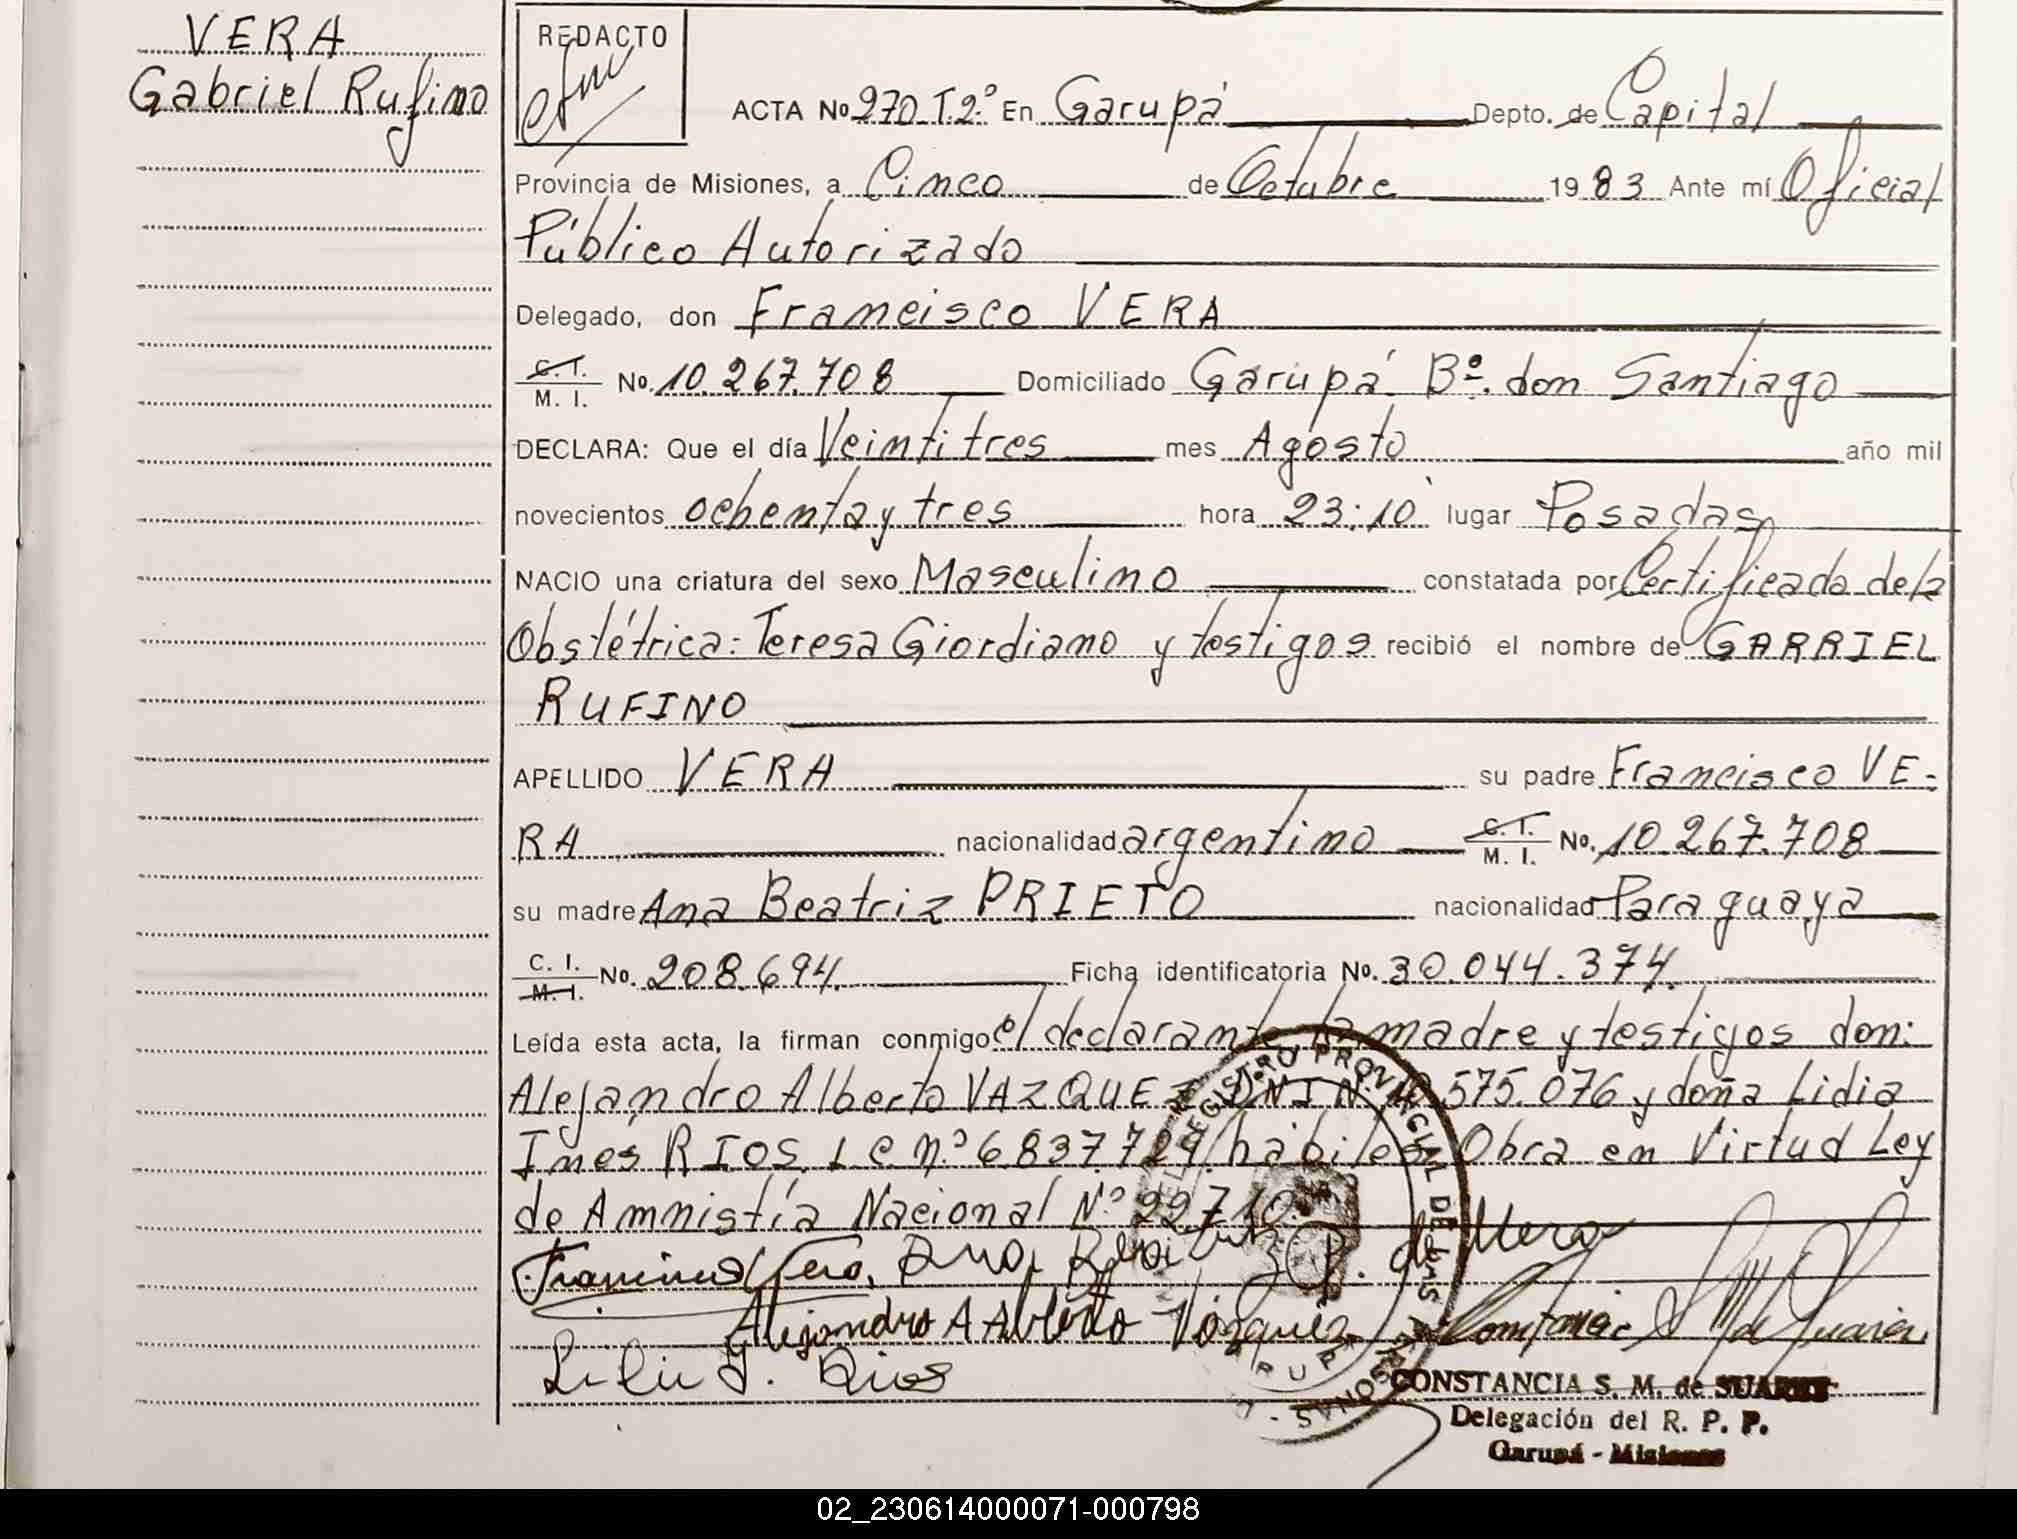 VERA
Gabriel Rufino
REDACTO
ACTA No 270 T.2.º En Garupá Depto. de Capital
Provincia de Misiones, a Cinco de Octubre 1983 Ante mí Oficial
Público Autorizado
Delegado, don Francisco VERA
C.I. M. I. No. 10.267.708 Domiciliado Garupá Bº. don Santiago
DECLARA: Que el día Veintitres mes Agosto año mil
novecientos ochenta y tres hora 23:10 lugar Posadas
NACIO una criatura del sexo Masculino constatada por Certificado de la
Obstétrica: Teresa Giordiano y testigos recibió el nombre de GABRIEL
RUFINO
APELLIDO VERA su padre Francisco VE-
RA nacionalidad argentino C.I. M. I. No. 10.267.708
su madre Ana Beatriz PRIETO nacionalidad Paraguaya
C. I. M. I. No. 208.694. Ficha identificatoria No. 30.044.374.
Leída esta acta, la firman conmigo el declarante la madre y testigos don:
Alejandro Alberto VAZQUEZ DNI N. 575.076 y doña Lidia
Inés RIOS L C n.º 6.837.729 hábiles. Obra en Virtud Ley
de Amnistía Nacional Nº 22710.
Francisco Vera, Ana Beatriz P. de Vera
Alejandro A Alberto Vázquez
Lidia I. Rios
REGISTRO PROVINCIAL DE LAS PERSONAS
CONSTANCIA S. M. de SUAREZ
Delegación del R. P. P.
Garupá - Misiones
02_230614000071-000798